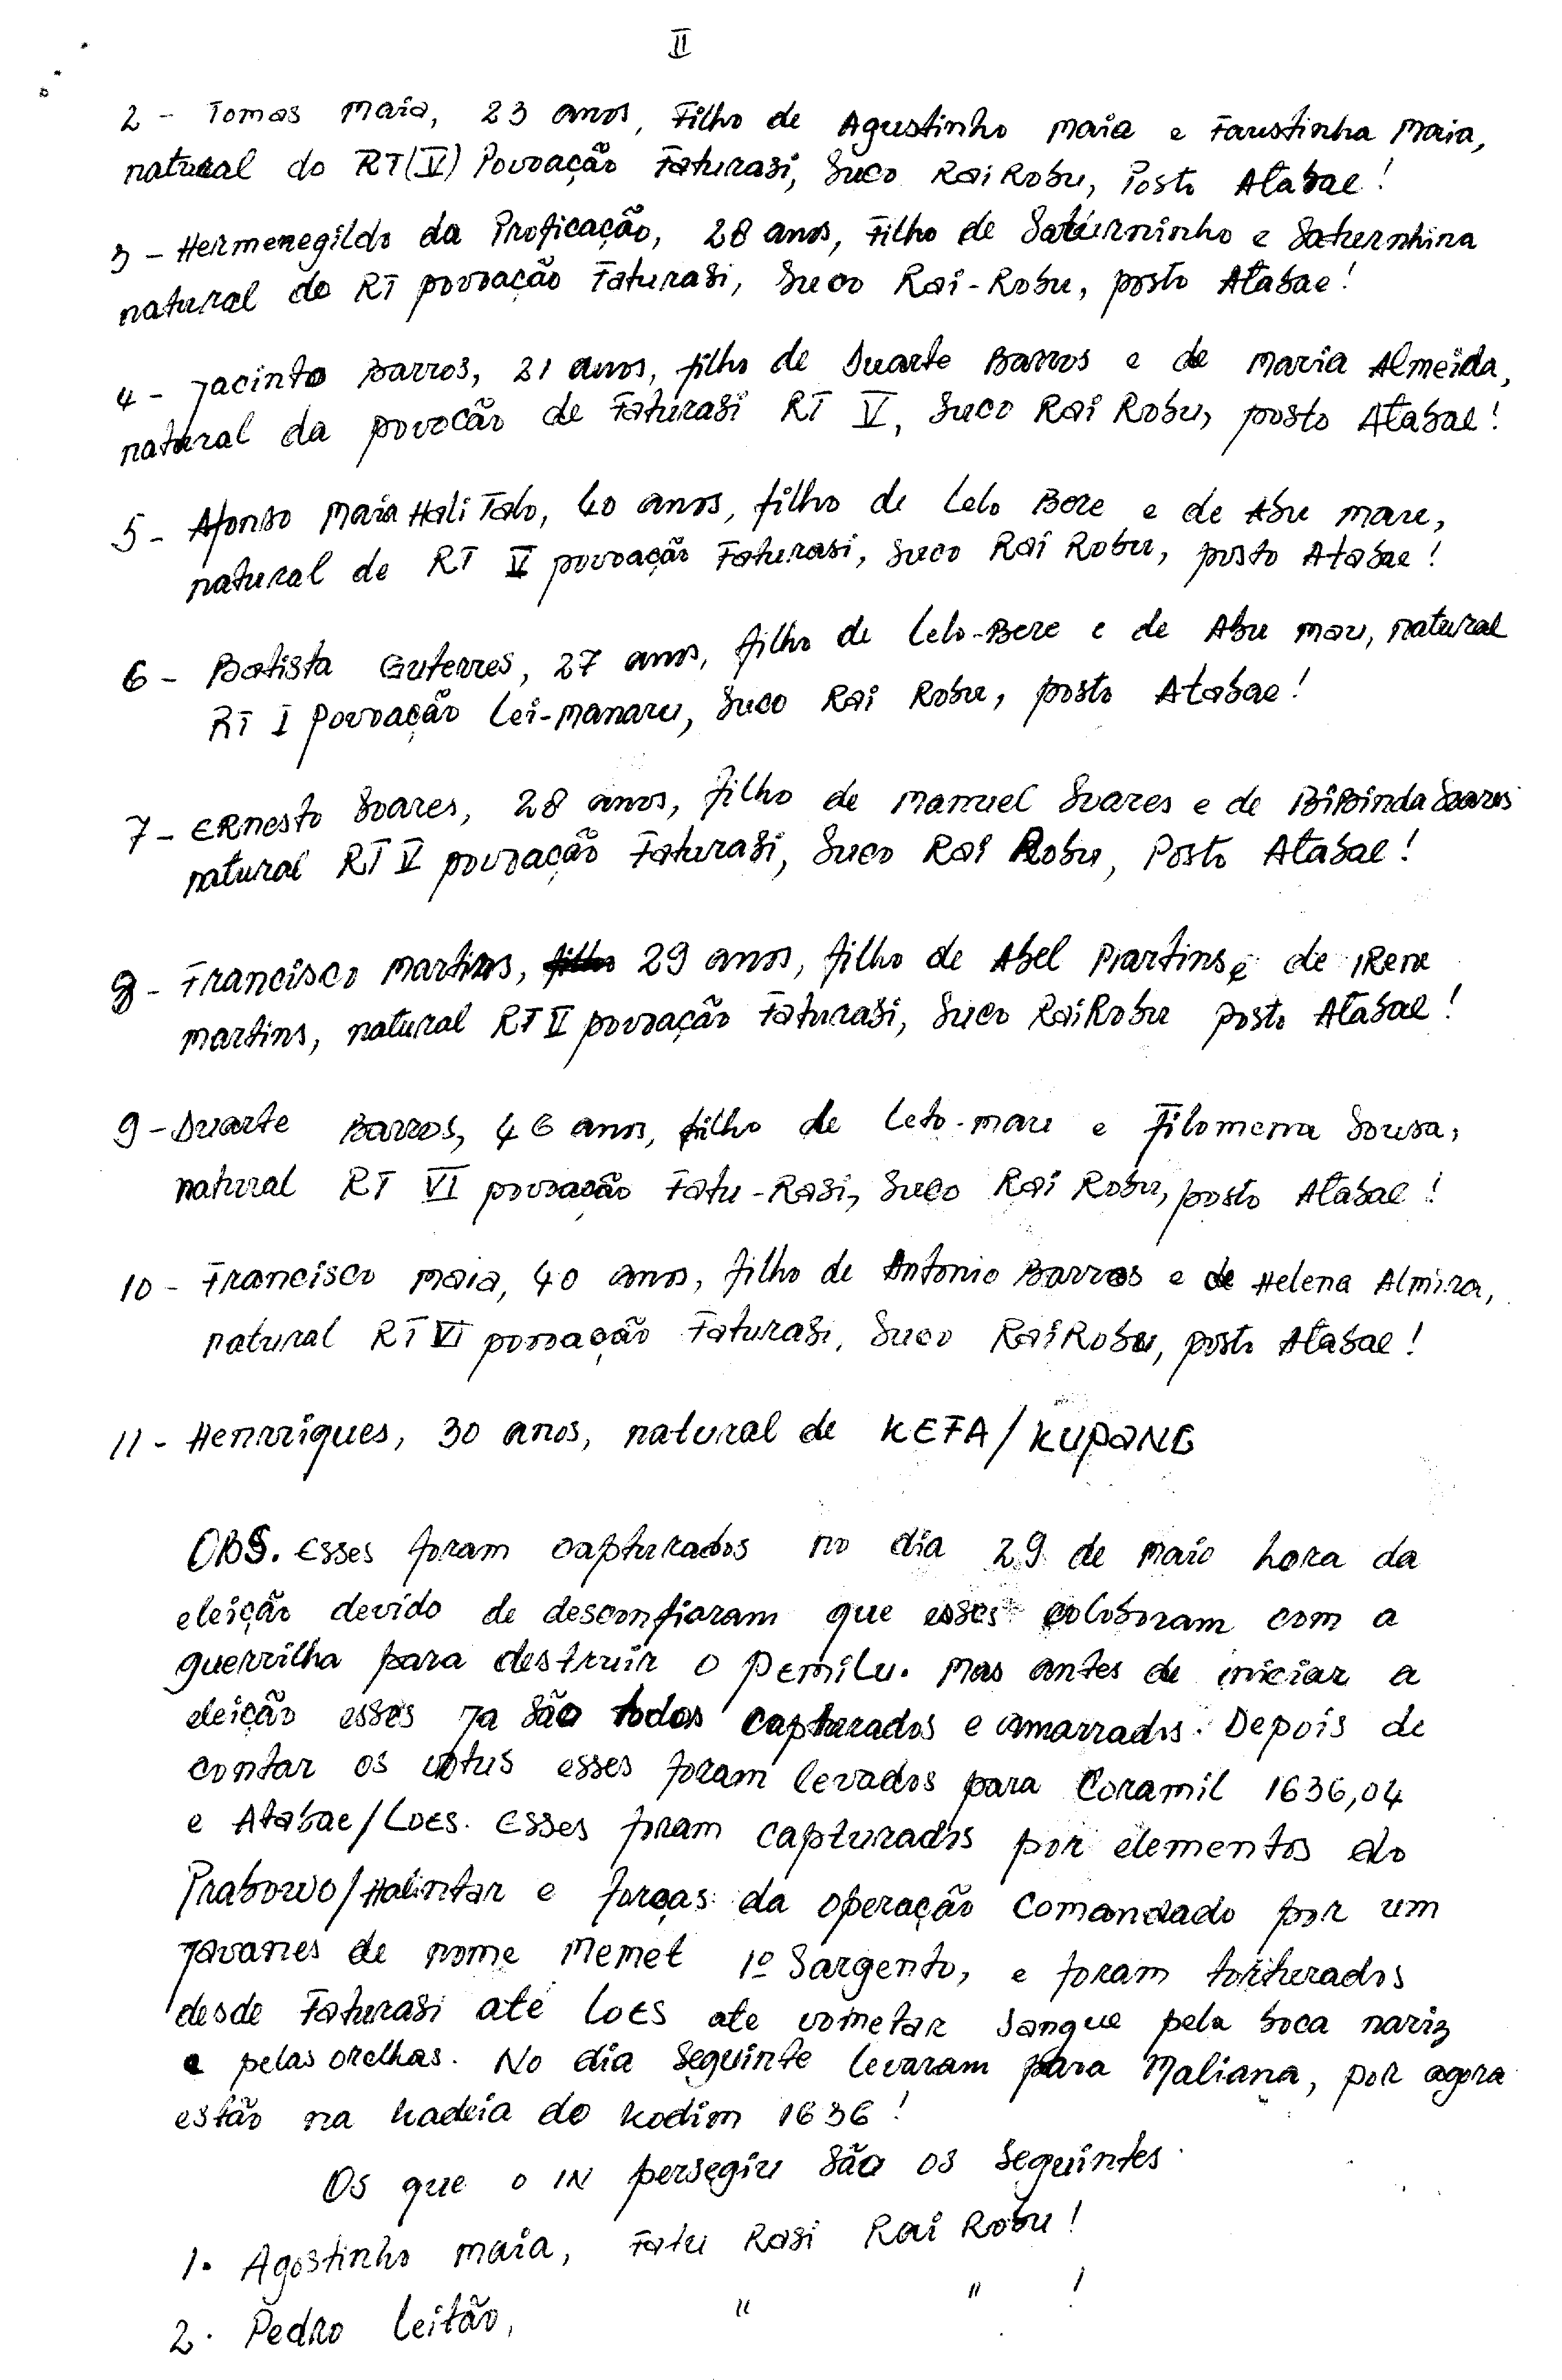 II
2 - Tomas Maia, 23 anos, Filho de Agustinho Maia e Faustinha Maia,
natural do RT(V) Povoação Faturasi, Suco Rai Robu, Posto Atabae!
3 - Hermenegildo da Proficação, 28 anos, Filho de Saturninho e Saturnhina
natural do RT povoação Faturasi, Suco Rai-Robu, posto Atabae!
4 - Jacinto Barros, 21 anos, filho de Duarte Barros e de Maria Almeida,
natural da povocão de Faturasi RT V, Suco Rai Robu, posto Atabae!
5 - Afonso Maia Hali Talo, 40 anos, filho de Lelo Bere e de Abu mau,
natural de RT V povoação Faturasi, Suco Rai Robu, posto Atabae!
6 - Batista Guterres, 27 anos, filho de Lelo-Bere e de Abu mau, natural
RT I povoação Lei-manaru, Suco Rai Robu, posto Atabae!
7 - Ernesto Soares, 28 anos, filho de Manuel Soares e de BiBinda Soares
natural RT V povoação Faturasi, Suco Rai Robu, Posto Atabae!
8 - Francisco Martins, 29 anos, filho de Abel Martins e de Irene
martins, natural RT II povoação Faturasi, Suco Rai Robu posto Atabae!
9 - Duarte Barros, 46 anos, filho de Leto-mau e Filomena Sousa,
natural RT VI povoação Fatu-Rasi, Suco Rai Robu, posto Atabae!
10 - Francisco Maia, 40 anos, filho de Antonio Barros e de Helena Almira,
natural RT VI povoação Faturasi, Suco Rai Robu, posto Atabae!
11 - Henrriques, 30 anos, natural de KEFA/KUPANG
OBS. Esses foram capturados no dia 29 de maio hora da
eleição devido de desconfiaram que esses coloboram com a
guerrilha para destruir o pemilu. Mas antes de iniciar a
eleição esses Ja são todos capturados e amarrados. Depois de
contar os votus esses foram levados para Coramil 1636,04
e Atabae/Loes. Esses foram capturados por elementos do
Prabowo/Halintar e forças da operação comandado por um
Javanes de nome Memet 1º Sargento, e foram torturados
desde Faturasi até Loes ate vometar sangue pela boca nariz
e pelas orelhas. No dia seguinte levaram para Maliana, por agora
estão na kadeia do kodim 1636!
Os que o IN persegiu são os seguintes
1. Agostinho maia, Fatu Rasi Rai Robu!
2. Pedro Leitão, " " !